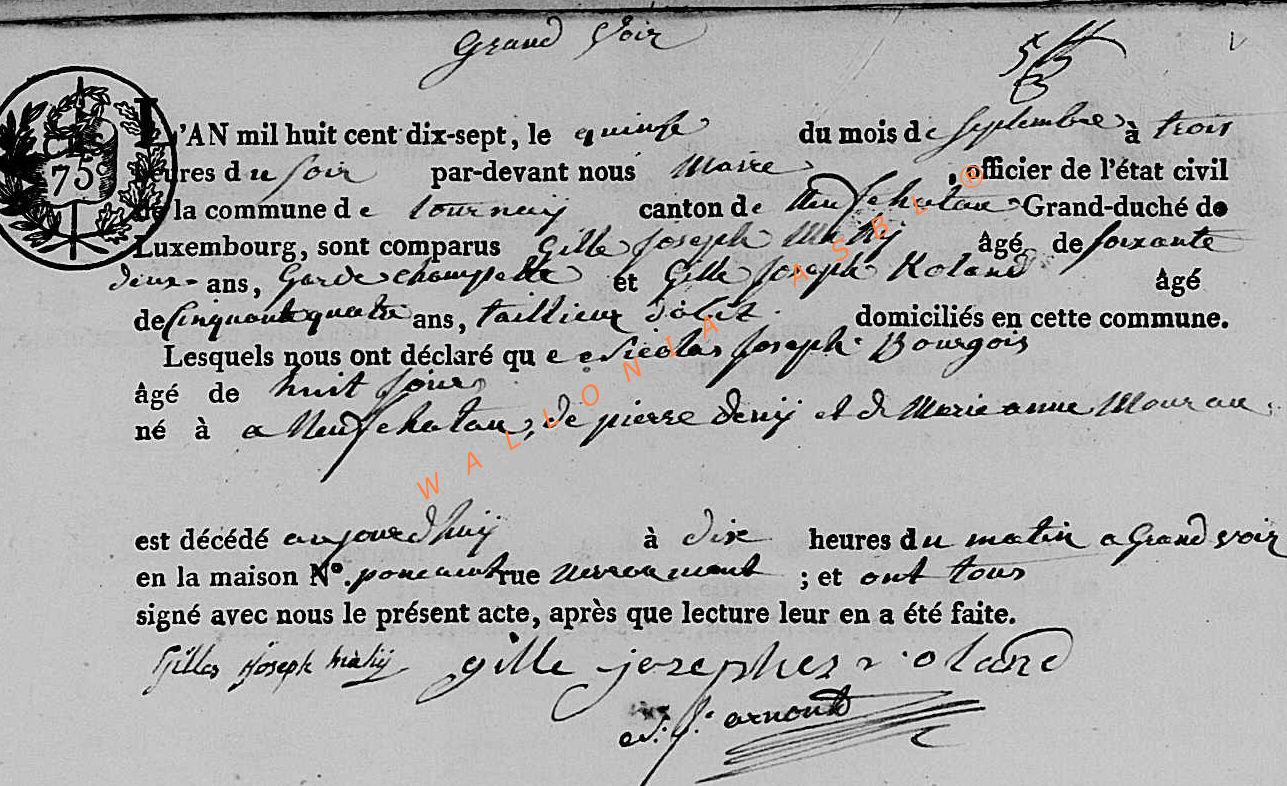 Grand Voir
L'AN mil huit cent dix-sept, le quinse du mois de Septembre à trois
heures du soir par-devant nous Maire, officier de l'état civil
de la commune de tournay canton de Neufchatau Grand-duché de
Luxembourg, sont comparus Gille Joseph Mahy âgé de soixante
deux ans, Garde champette et Gille Joseph Roland âgé
de Cinquante quatre ans, taillieur d'abit domiciliés en cette commune.
Lesquels nous ont déclaré que Nicolas Joseph Bourgois
âgé de huit jours
né à a Neufchatau, de pierre Deny et de Marie anne Mourau
est décédé aujourdhuy à dix heures du matin a Grand voir
en la maison N°. rue ; et ont tous
signé avec nous le présent acte, après que lecture leur en a été faite.
Gilles Joseph mahy gille josephes roland
arnould
75
WALLONIA ASBL ®